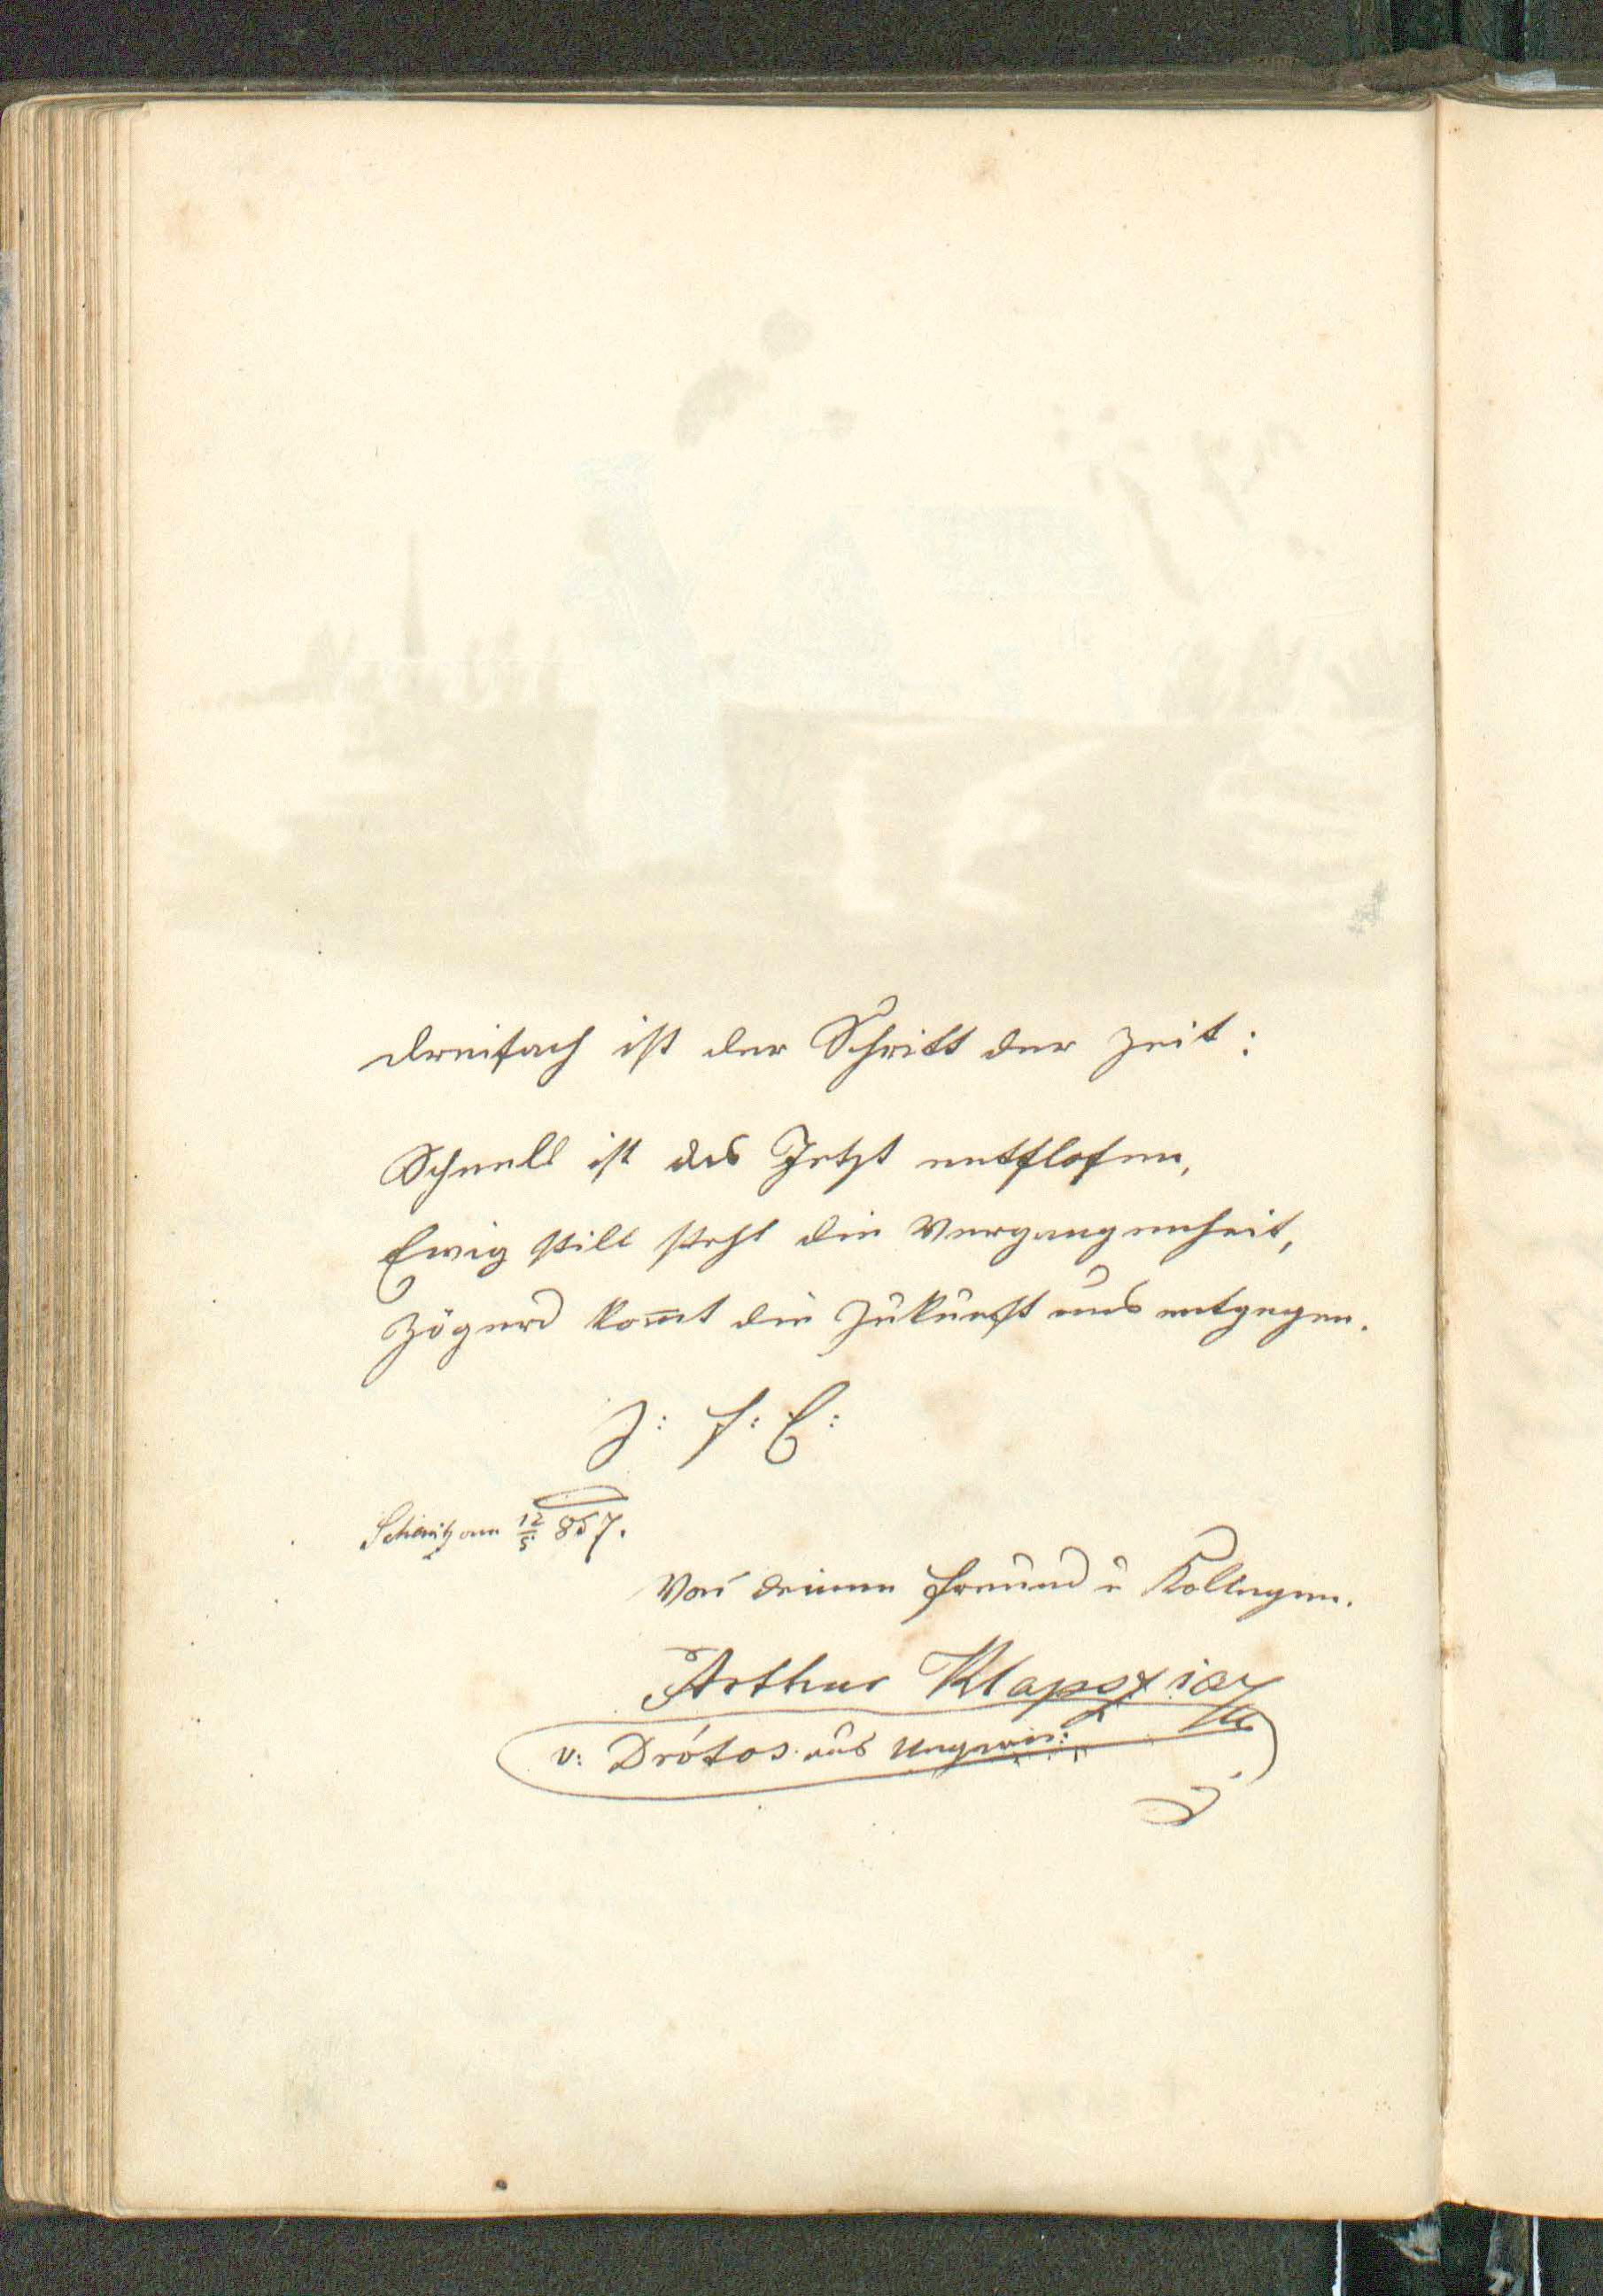 dreifach ist der Schritt der Zeit:
Schnell ist das Jetzt entflohen,
Ewig still steht die Vergangenheit,
Zögernd kom̅t die Zukunft uns entgegen.
Z: f: E:
am 12/5 857.
Von deinem Freund u Kollegen.
Arthur
v: Drótos aus Ungarn: